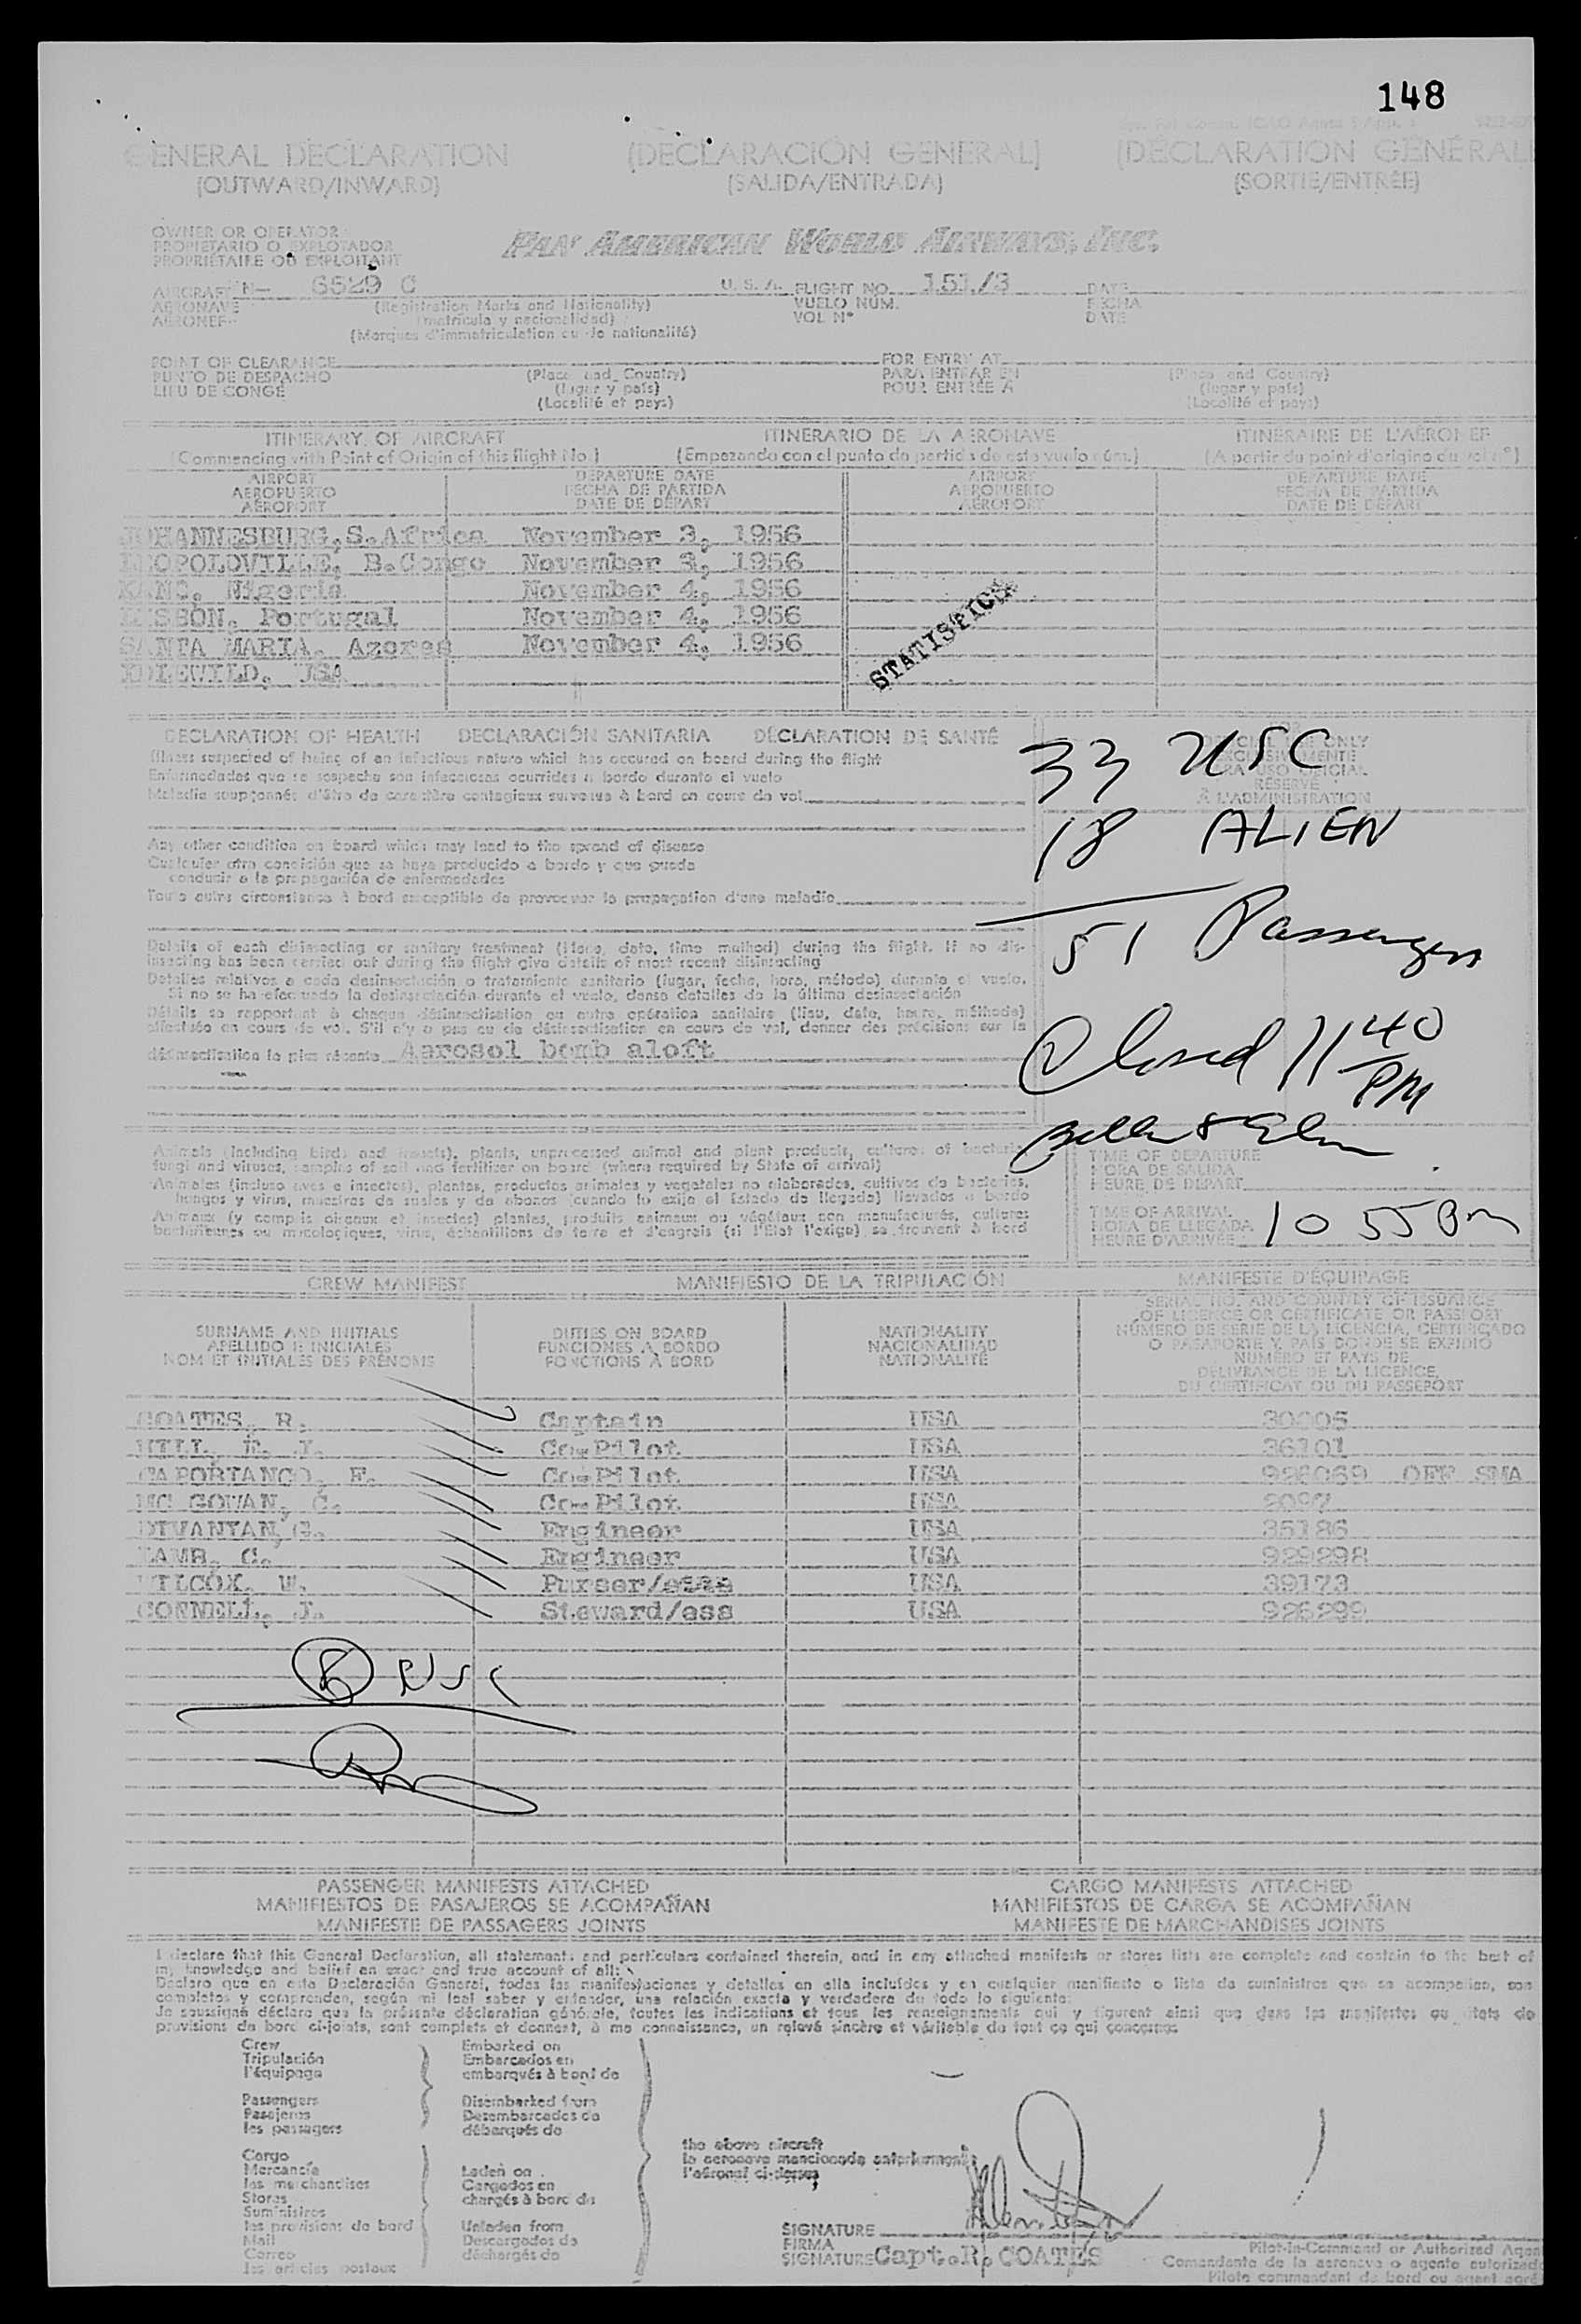 148
GENERAL DECLARATION (DECLARACIÓN GENERAL) (DÉCLARATION GÉNÉRALE
(OUTWARD/INWARD) (SALIDA/ENTRADA) (SORTIE/ENTRÉE)
OWNER OR OPERATOR
PROPIETARIO O EXPLOTADOR
PROPRIÉTAIRE OU EXPLOITANT
PAN AMERICAN WORLD AIRWAYS, INC.
AIRCRAFT N- 6529 C U. S. A. FLIGHT NO. 151/3 DATE
AERONAVE (Registration Marks and Nationality) VUELO NÚM. FECHA
AÉRONEF (matrícula y nacionalidad) VOL Nº DATE
(Marques d'immatriculation ou de nationalité)
POINT OF CLEARANCE FOR ENTRY AT
PUNTO DE DESPACHO (Place and Country) PARA ENTRAR EN (Place and Country)
LIEU DE CONGÉ (lugar y país) POUR ENTRÉE A (lugar y país)
(Localité et pays) (Localité et pays)
ITINERARY OF AIRCRAFT ITINERARIO DE LA AERONAVE ITINÉRAIRE DE L'AÉRONEF
(Commencing with Point of Origin of this flight No.) (Empezando con el punto de partida de este vuelo núm.) (A partir du point d'origine du vol nº)
AIRPORT DEPARTURE DATE AIRPORT DEPARTURE DATE
AEROPUERTO FECHA DE PARTIDA AEROPUERTO FECHA DE PARTIDA
AÉROPORT DATE DE DÉPART AÉROPORT DATE DE DÉPART
JOHANNESBURG,S.Africa November 3, 1956
LEOPOLDVILLE, B.Congo November 3, 1956
KANO, Nigeria November 4, 1956
LISBON, Portugal November 4, 1956
SANTA MARIA, Azores November 4, 1956
IDLEWILD, USA
STATISTICS
DECLARATION OF HEALTH DECLARACIÓN SANITARIA DÉCLARATION DE SANTÉ
FOR OFFICIAL USE ONLY
EXCLUSIVAMENTE
PARA USO OFICIAL
RÉSERVÉ
À L'ADMINISTRATION
Illness suspected of being of an infectious nature which has occured on board during the flight
Enfermedades que se sospecha son infecciosas ocurridas a bordo durante el vuelo
Maladie soupçonnée d'être de caractère contagieux survenue à bord en cours de vol
33 USC
18 ALIEN
51 Passengers
Closed 11 40 PM
Any other condition on board which may lead to the spread of disease
Cualquier otra condición que se haya producido a bordo y que pueda
conducir a la propagación de enfermedades
Toute autre circonstance à bord susceptible de provoquer la propagation d'une maladie
Details of each disinsecting or sanitary treatment (place, date, time method) during the flight. If no dis-
insecting has been carried out during the flight give details of most recent disinsecting
Detalles relativos a cada desinsectación o tratamiento sanitario (lugar, fecha, hora, método) durante el vuelo.
Si no se ha efectuado la desinsectación durante el vuelo, dense detalles de la última desinsectación
Détails se rapportant à chaque désinsectisation ou autre opération sanitaire (lieu, date, heure, méthode)
effectuée en cours de vol. S'il n'y a pas eu de désinsectisation en cours de vol, donner des précisions sur la
désinsectisation la plus récente Aerosol bomb aloft
Animals (including birds and insects), plants, unprocessed animal and plant products, cultures of bacteria,
fungi and viruses, samples of soil and fertilizer on board (where required by State of arrival)
Animales (incluso aves e insectos), plantas, productos animales y vegetales no elaborados, cultivos de bacterias,
hongos y virus, muestras de suelos y de abonos (cuando lo exija el Estado de llegada) llevados a bordo
Animaux (y compris oiseaux et insectes) plantes, produits animaux ou végétaux non manufacturés, cultures
bactériennes ou micologiques, virus, échantillons de terre et d'engrais (si l'État l'exige) se trouvant à bord
TIME OF DEPARTURE
HORA DE SALIDA
HEURE DE DÉPART
TIME OF ARRIVAL
HORA DE LLEGADA
HEURE D'ARRIVÉE 10 55 Pm
CREW MANIFEST MANIFIESTO DE LA TRIPULACIÓN MANIFESTE D'ÉQUIPAGE
SURNAME AND INITIALS
APELLIDO E INICIALES
NOM ET INITIALES DES PRÉNOMS
DUTIES ON BOARD
FUNCIONES A BORDO
FONCTIONS À BORD
NATIONALITY
NACIONALIDAD
NATIONALITÉ
SERIAL NO. AND COUNTRY OF ISSUANCE
OF LICENCE OR CERTIFICATE OR PASSPORT
NÚMERO DE SERIE DE LA LICENCIA, CERTIFICADO
O PASAPORTE Y PAÍS DONDE SE EXPIDIÓ
NUMÉRO ET PAYS DE
DÉLIVRANCE DE LA LICENCE,
DU CERTIFICAT OU DU PASSEPORT
COATES, R. Captain USA 30005
HILL, R. J. Co-Pilot USA 36101
CAPORTANCO, F. Co-Pilot USA 926069 OFF SMA
MC GOVAN, C. Co-Pilot USA 2097
DIVANYAN, G. Engineer USA 35186
LAMB, C. Engineer USA 929298
WILCOX, W. Purser/ USA 39173
CONNELL, J. Steward/ess USA 926299
8 USC
PASSENGER MANIFESTS ATTACHED CARGO MANIFESTS ATTACHED
MANIFIESTOS DE PASAJEROS SE ACOMPAÑAN MANIFIESTOS DE CARGA SE ACOMPAÑAN
MANIFESTE DE PASSAGERS JOINTS MANIFESTE DE MARCHANDISES JOINTS
I declare that this General Declaration, all statements and particulars contained therein, and in any attached manifests or stores lists are complete and contain to the best of
my knowledge and belief an exact and true account of all:
Declaro que en esta Declaración General, todas las manifestaciones y detalles en ella incluídos y en cualquier manifiesto o lista de suministros que se acompañen, son
completos y comprenden, según mi leal saber y entender, una relación exacta y verdadera de todo lo siguiente:
Je soussigné déclare que la présente déclaration générale, toutes les indications et tous les renseignements qui y figurent ainsi que dans les manifestes ou états de
provisions de bord ci-joints, sont complets et donnent, à ma connaissance, un relevé sincère et véritable de tout ce qui concerne:
Crew Embarked on
Tripulación Embarcados en
l'équipage embarqués à bord de
Passengers Disembarked from
Pasajeros Desembarcados de
les passagers débarqués de
the above aircraft
la aeronave mencionada anteriormente
l'aéronef ci-dessus
Cargo
Mercancía Laden on
les marchandises Cargados en
Stores chargés à bord de
Suministros
les provisions de bord Unladen from
Mail Descargados de
Correo déchargés de
les articles postaux
SIGNATURE
FIRMA
SIGNATURE Capt. R. COATES
Pilot-in-Command or Authorized Agen
Comandante de la aeronave o agente autorizad
Pilote commandant de bord ou agent agré